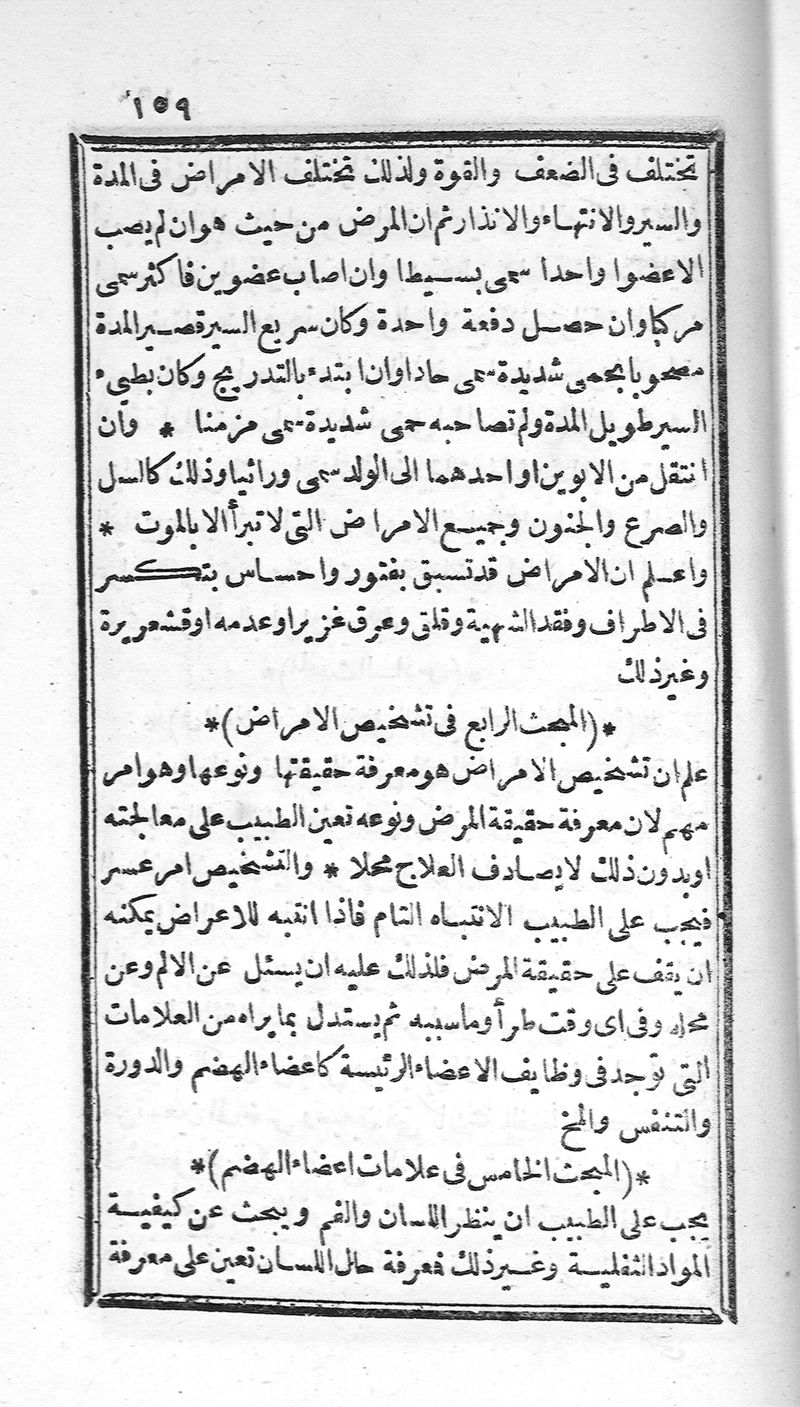 ١٥٩
تختلف فى الضعف والقوة ولذلك تختلف الامراض فى المدة
والسير والانتهاء والانذار ثم ان المرض من حيث هو ان لم يصب
الا عضوا واحدا سمى بسيطا وان اصاب عضوين فاكثر سمى
مركبا وان حصل دفعة واحدة وكان سريع السير قصير المدة
مصحوبا بحمى شديدة سمى حادا وان ابتدء بالتدريج وكان بطيء
السير طويل المدة ولم تصاحبه حمى شديدة سمى مزمنا * وان
انتقل من الابوين او احدهما الى الولد سمى وراثيا وذلك كالسل
والصرع والجنون وجميع الامراض التى لا تبرأ الا بالموت *
واعلم ان الامراض قد تسبق بفتور واحساس بتكسر
فى الاطراف وفقد الشهية وقلق وعرق غزير او عدمه او قشعريرة
وغير ذلك
*(المبحث الرابع فى تشخيص الامراض)*
علم ان تشخيص الامراض هو معرفة حقيقتها ونوعها وهو امر
مهم لان معرفة حقيقة المرض ونوعه تعين الطبيب على معالجته
او بدون ذلك لا يصادف العلاج محلا * والتشخيص امر عسر
فيجب على الطبيب الانتباه التام فاذا انتبه للاعراض يمكنه
ان يقف على حقيقة المرض فلذلك عليه ان يسئل عن الالم وعن
محله وفى اى وقت طرأ وما سببه ثم يستدل بما يراه من العلامات
التى توجد فى وظايف الاعضاء الرئيسة كاعضاء الهضم والدورة
والتنفس والمخ
*(المبحث الخامس فى علامات اعضاء الهضم)*
يجب على الطبيب ان ينظر اللسان والفم ويبحث عن كيفية
المواد الثفلية وغير ذلك فمعرفة حال اللسان تعين على معرفة